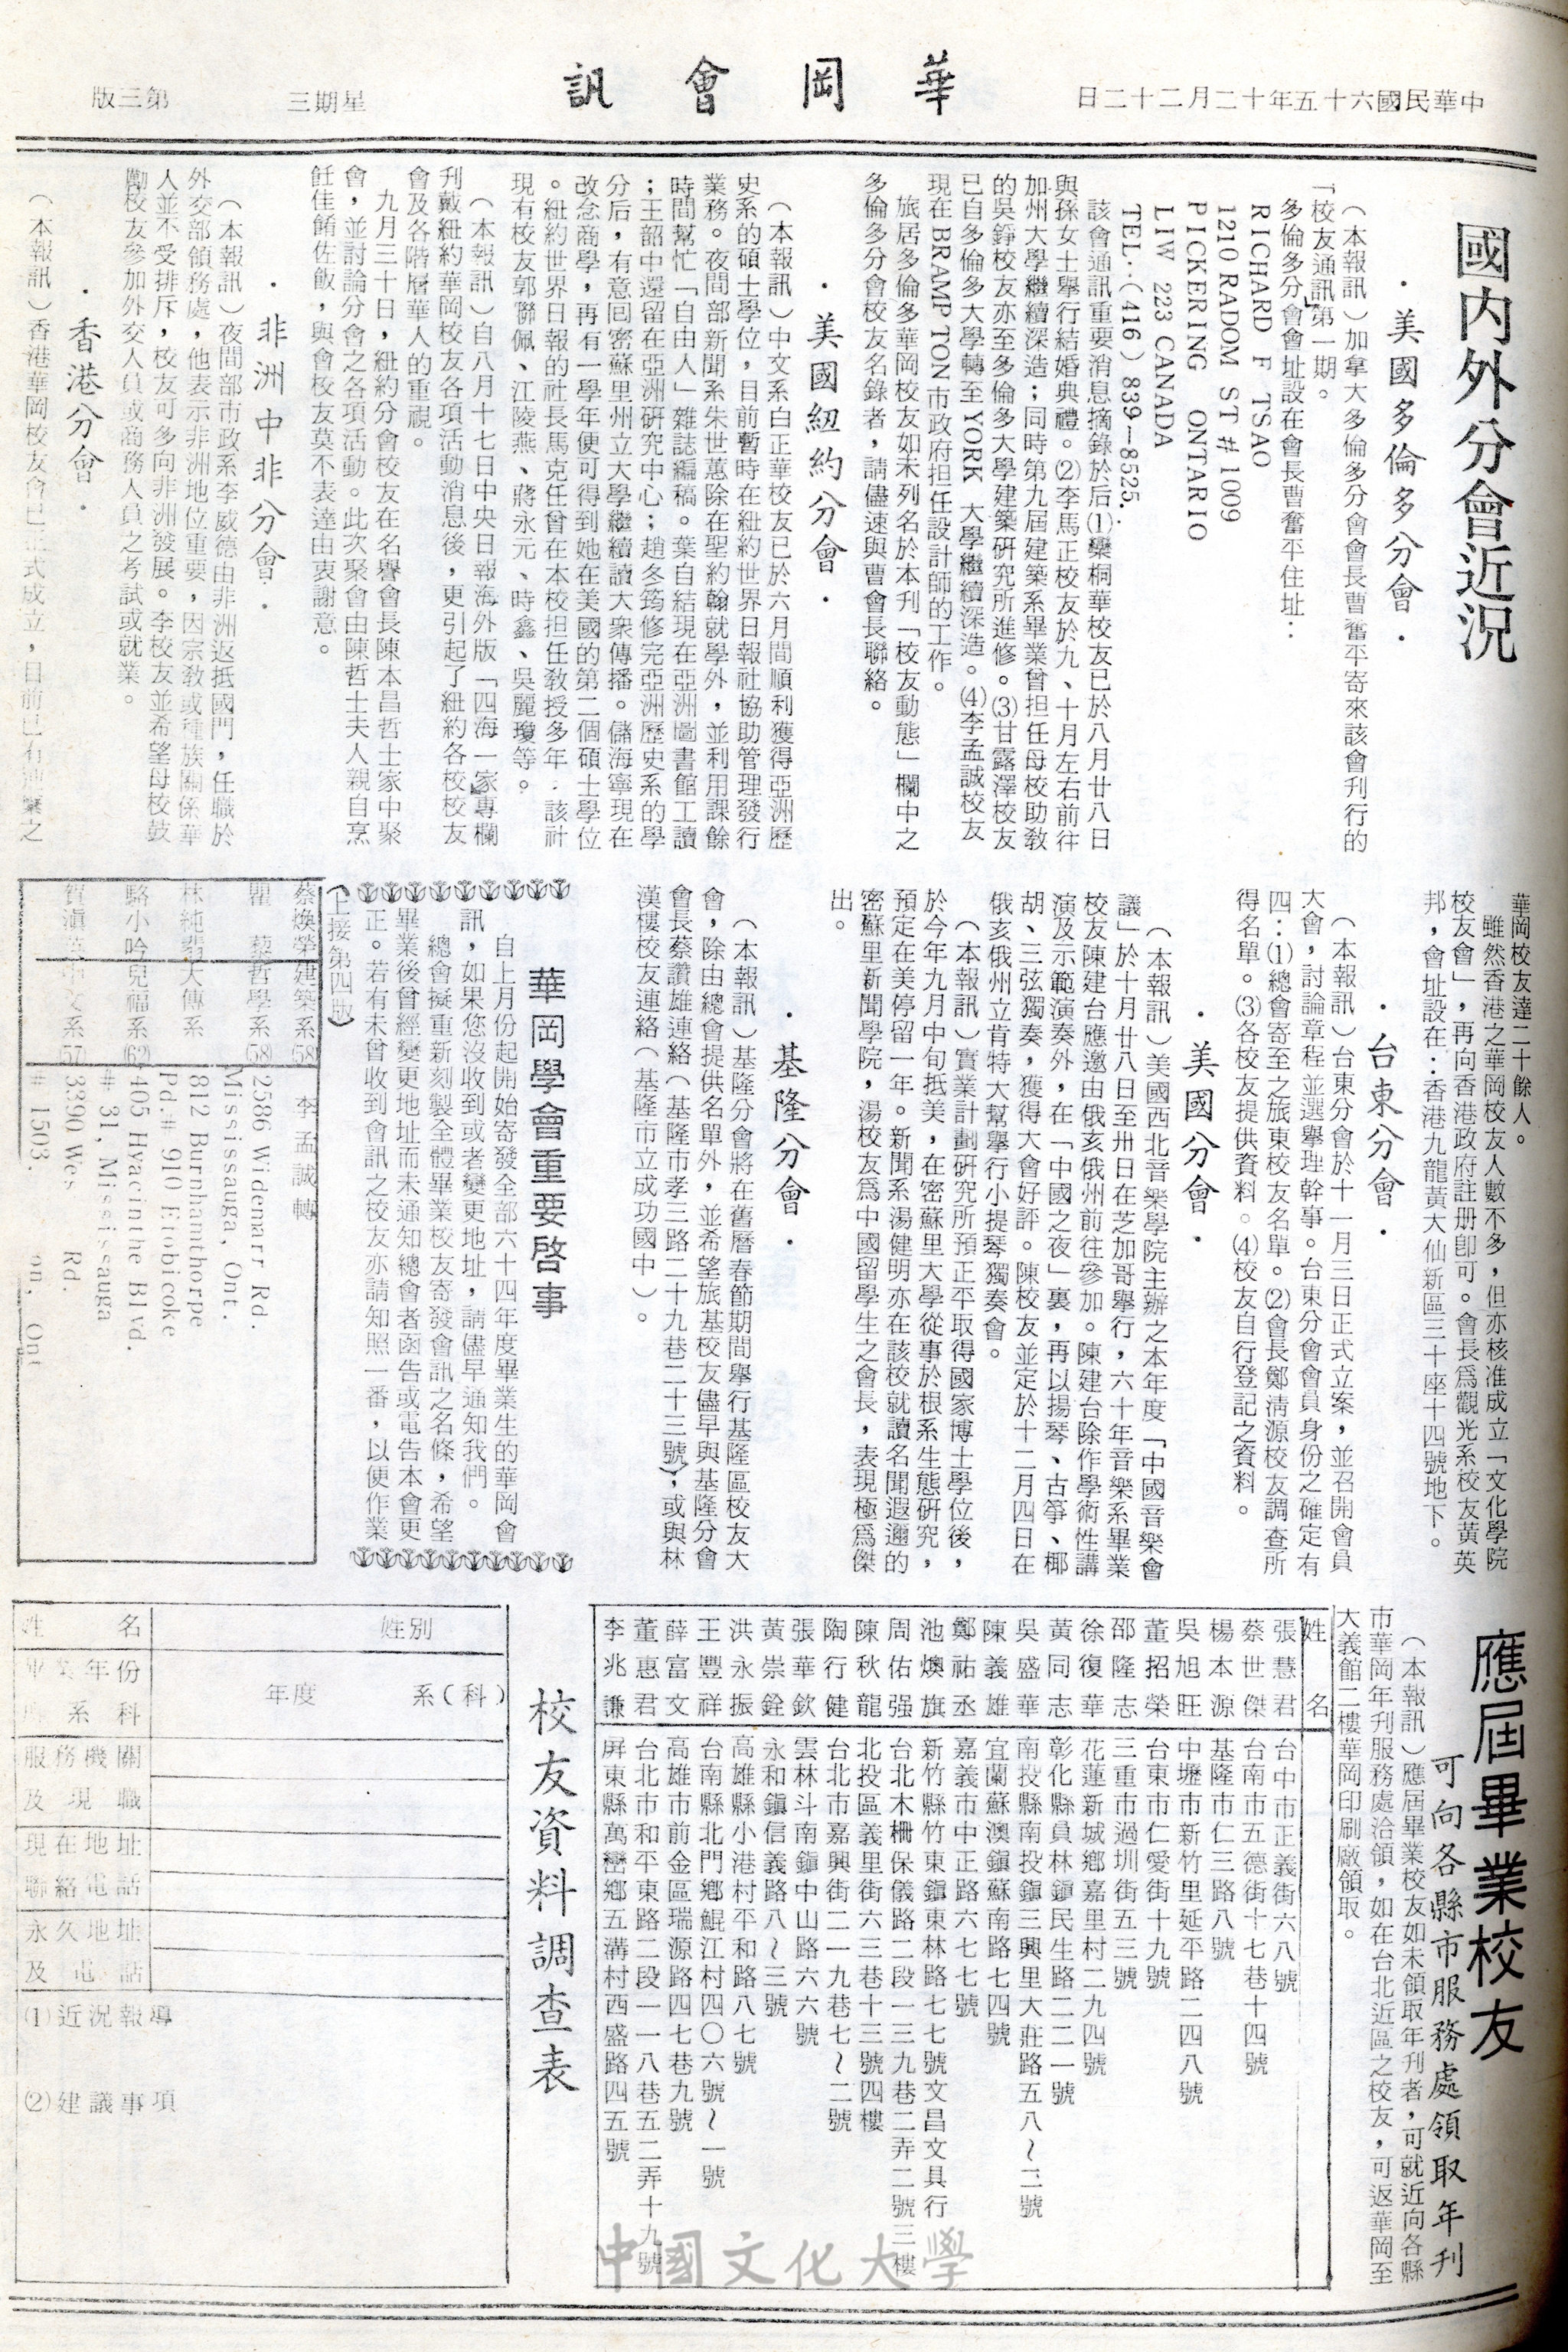 中華民國六十五年十二月二十二日
華岡會訊
星期三
第三版
國內外分會近況
·美國多倫多分會·
（本報訊）加拿大多倫多分會會長曹奮平寄來該會刊行的
「校友通訊」第一期。
多倫多分會會址設在會長曹奮平住址：
RICHARD F TSAO
1210 RADOM ST # 1009
PICKERING ONTARIO
LIW 223 CANADA
TEL：（416）839－8525.
該會通訊重要消息摘錄於后⑴欒桐華校友已於八月廿八日
與孫女士舉行結婚典禮。⑵李馬正校友於九、十月左右前往
加州大學繼續深造；同時第九屆建築系畢業曾担任母校助教
的吳錚校友亦至多倫多大學建築研究所進修。⑶甘露澤校友
已自多倫多大學轉至 YORK 大學繼續深造。⑷李孟誠校友
現在 BRAMP TON 市政府担任設計師的工作。
旅居多倫多華岡校友如未列名於本刊「校友動態」欄中之
多倫多分會校友名錄者，請儘速與曹會長聯絡。
·美國紐約分會·
（本報訊）中文系白正華校友已於六月間順利獲得亞洲歷
史系的碩士學位，目前暫時在紐約世界日報社協助管理發行
業務。夜間部新聞系朱世蕙除在聖約翰就學外，並利用課餘
時間幫忙「自由人」雜誌編稿。葉自結現在亞洲圖書館工讀
；王韶中還留在亞洲研究中心；趙冬筠修完亞洲歷史系的學
分后，有意回密蘇里州立大學繼續讀大衆傳播。儲海寧現在
改念商學，再有一學年便可得到她在美國的第二個碩士學位
。紐約世界日報的社長馬克任曾在本校担任教授多年．該社
現有校友郭聯佩、江陵燕、蔣永元、時鑫、吳麗瓊等。
（本報訊）自八月十七日中央日報海外版「四海一家」專欄
刊戴紐約華岡校友各項活動消息後，更引起了紐約各校校友
會及各階層華人的重視。
九月三十日，紐約分會校友在名譽會長陳本昌哲士家中聚
會，並討論分會之各項活動。此次聚會由陳哲士夫人親自烹
飪佳餚佐飯，與會校友莫不表達由衷謝意。
·非洲中非分會·
（本報訊）夜間部市政系李威德由非洲返抵國門，任職於
外交部領務處，他表示非洲地位重要，因宗教或種族關係華
人並不受排斥，校友可多向非洲發展。李校友並希望母校鼓
勵校友參加外交人員或商務人員之考試或就業。
·香港分會·
（本報訊）香港華岡校友會已正式成立，目前已有連繫之
華岡校友達二十餘人。
雖然香港之華岡校友人數不多，但亦核准成立「文化學院
校友會」，再向香港政府註册卽可。會長爲觀光系校友黃英
邦，會址設在：香港九龍黃大仙新區三十座十四號地下。
·台東分會·
（本報訊）台東分會於十一月三日正式立案，並召開會員
大會，討論章程並選舉理幹事。台東分會會員身份之確定有
四：⑴總會寄至之旅東校友名單。⑵會長鄭清源校友調查所
得名單。⑶各校友提供資料。⑷校友自行登記之資料。
·美國分會·
（本報訊）美國西北音樂學院主辦之本年度「中國音樂會
議」於十月廿八日至卅日在芝加哥舉行，六十年音樂系畢業
校友陳建台應邀由俄亥俄州前往參加。陳建台除作學術性講
演及示範演奏外，在「中國之夜」裏，再以揚琴、古箏、椰
胡、三弦獨奏，獲得大會好評。陳校友並定於十二月四日在
俄亥俄州立肯特大幫擧行小提琴獨奏會。
（本報訊）實業計劃研究所預正平取得國家博士學位後，
於今年九月中旬抵美，在密蘇里大學從事於根系生態研究，
預定在美停留一年。新聞系湯健明亦在該校就讀名聞遐邇的
密蘇里新聞學院，湯校友爲中國留學生之會長，表現極爲傑
出。
·基隆分會·
（本報訊）基隆分會將在舊曆春節期間舉行基隆區校友大
會，除由總會提供名單外，並希望旅基校友儘早與基隆分會
會長蔡讚雄連絡（基隆市孝三路二十九巷二十三號），或與林
漢樓校友連絡（基隆市立成功國中）。
華岡學會重要啓事
自上月份起開始寄發全部六十四年度畢業生的華岡會
訊，如果您沒收到或者變更地址，請儘早通知我們。
總會擬重新刻製全體畢業校友寄發會訊之名條，希望
畢業後曾經變更地址而未通知總會者函告或電告本會更
正。若有未曾收到會訊之校友亦請知照一番，以便作業
（上接第四版）
蔡煥榮 建築系(58) 李孟誠轉
瞿 藜 哲學系(58) 2586 Widemarr Rd.
Mississauga, Ont.
林純翡 大傳系 812 Burnhamthorpe
Pd.# 910 Etobicoke
駱小吟 兒福系(62) 405 Hyacinthe Blvd.
# 31, Mississauga
賀滇英 中文系(57) 3390 Wes Rd.
# 1503. on, Ont
應屆畢業校友
可向各縣市服務處領取年刊
（本報訊）應屆畢業校友如未領取年刊者，可就近向各縣
市華岡年刊服務處洽領，如在台北近區之校友，可返華岡至
大義館二樓華岡印刷廠領取。
姓名
張慧君 台中市正義街六八號
蔡世傑 台南市五德街十七巷十四號
楊本源 基隆市仁三路八號
吳旭旺 中壢市新竹里延平路二四八號
董招榮 台東市仁愛街十九號
邵隆志 三重市過圳街五三號
徐復華 花蓮新城鄉嘉里村二九四號
黃同志 彰化縣員林鎭民生路二二一號
吳盛華 南投縣南投鎭三興里大莊路五八～二號
陳義雄 宜蘭蘇澳鎭蘇南路七四號
鄭祐丞 嘉義市中正路六七七號
池燠旗 新竹縣竹東鎭東林路七七號文昌文具行
周佑强 台北木柵保儀路二段一三九巷二弄二號三樓
陳秋龍 北投區義里街六三巷十三號四樓
陶行健 台北市嘉興街二一九巷七～二號
張華欽 雲林斗南鎭中山路六六號
黃崇銓 永和鎭信義路八～三號
洪永振 高雄縣小港村平和路八七號
王豐祥 台南縣北門鄉鯤江村四〇六號～一號
薛富文 高雄市前金區瑞源路四七巷九號
董惠君 台北市和平東路二段一一八巷五二弄十九號
李兆謙 屏東縣萬巒鄉五溝村西盛路四五號
校友資料調查表
姓名 姓別
畢業年份 年度 系（科）
系科
服務機關
及現職
現在地址
聯絡電話
永久地址
及電話
⑴近況報導
⑵建議事項
中國文化大學